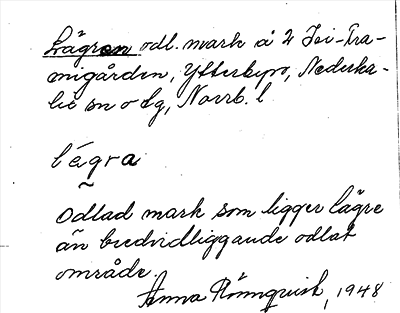 Lägren odl. mark å 2 Joi-Tra-
migården, Ytterbyn, Nederka-
lix sn o lg, Norrb. l
lägra
Odlad mark som ligger lägre
än bredvidliggande odlat
område.
Anna Rönnqvist, 1948